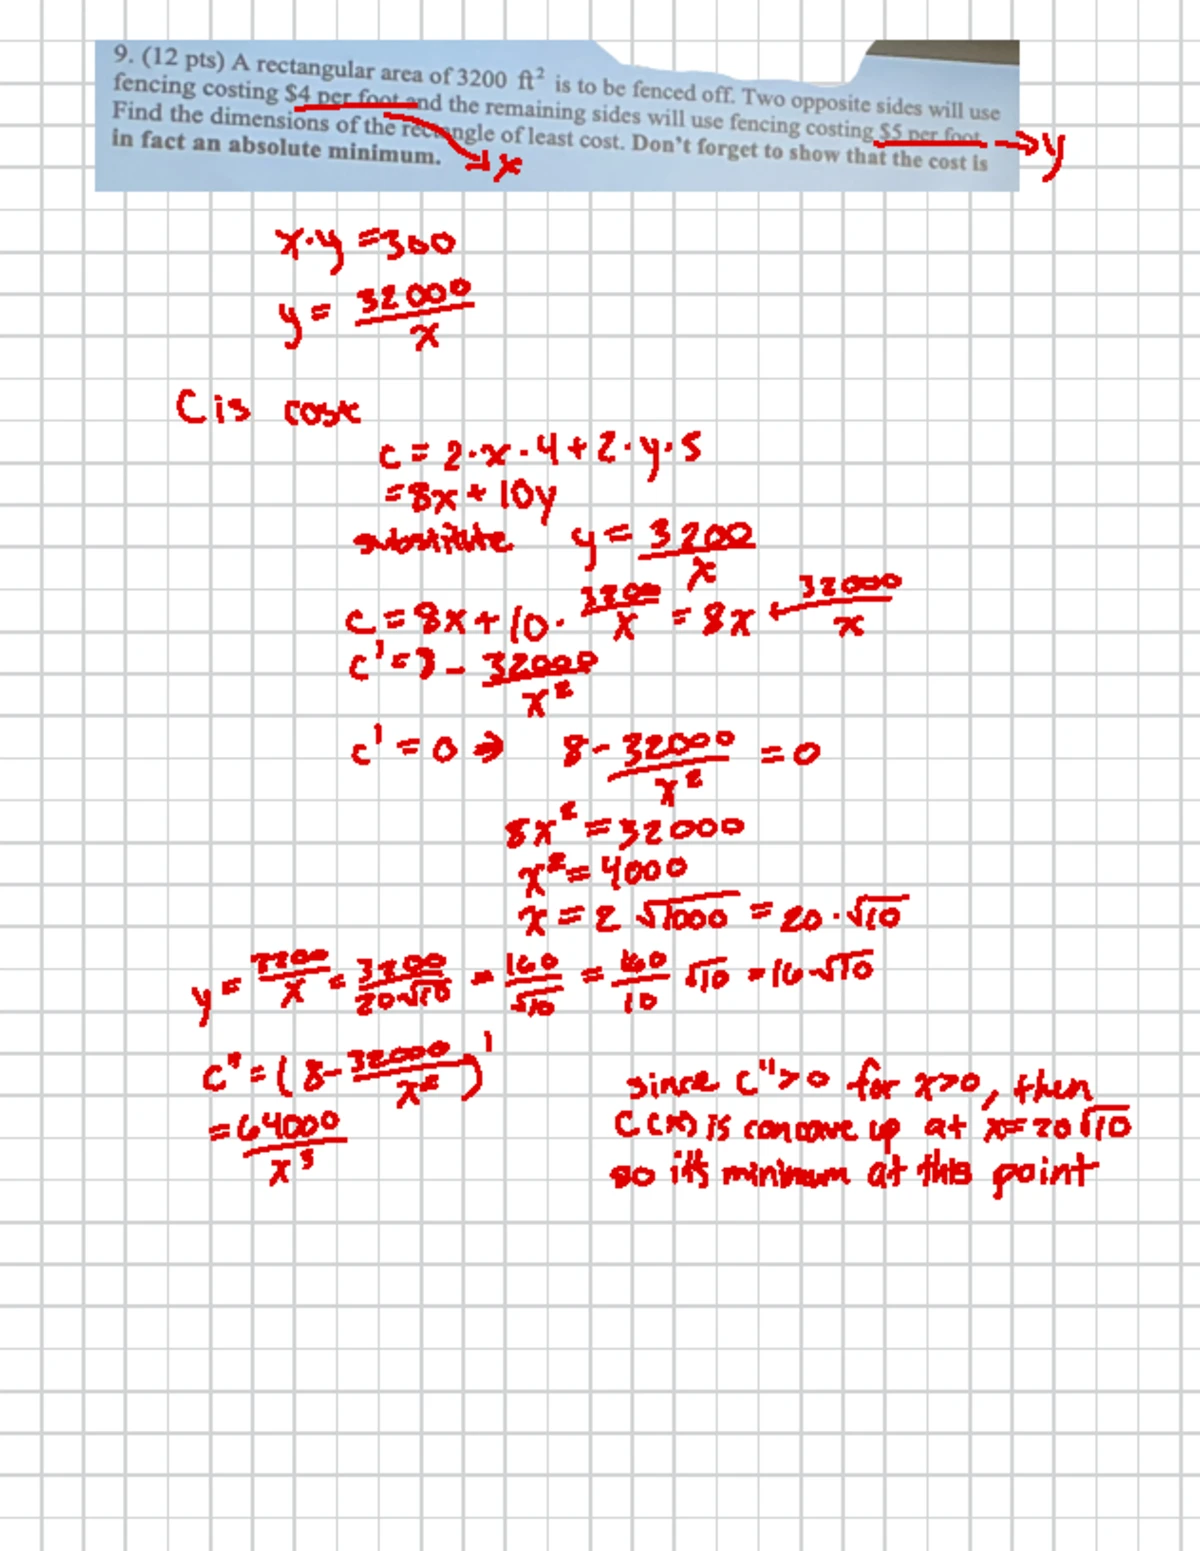 9. (12 pts) A rectangular area of 3200 ft² is to be fenced off. Two opposite sides will use
fencing costing $4 per foot and the remaining sides will use fencing costing $5 per foot → y
Find the dimensions of the rectangle of least cost. Don't forget to show that the cost is
in fact an absolute minimum. → x
x·y = 300
y = 32000/x
C is cost
c = 2·x·4 + 2·y·5
= 8x + 10y
substitute y = 3200/x
c = 8x + 10· 3200/x = 8x + 32000/x
c' = 8 - 32000/x²
c' = 0 ⇒ 8 - 32000/x² = 0
8x² = 32000
x² = 4000
x = 2√1000 = 20·√10
y = 3200/x = 3200/20√10 = 160/√10 = 160/10 √10 = 16√10
c" = (8 - 32000/x²)'
= 64000/x³
since c">0 for x>0, then
C(x) is concave up at x=20√10
so it's minimum at this point